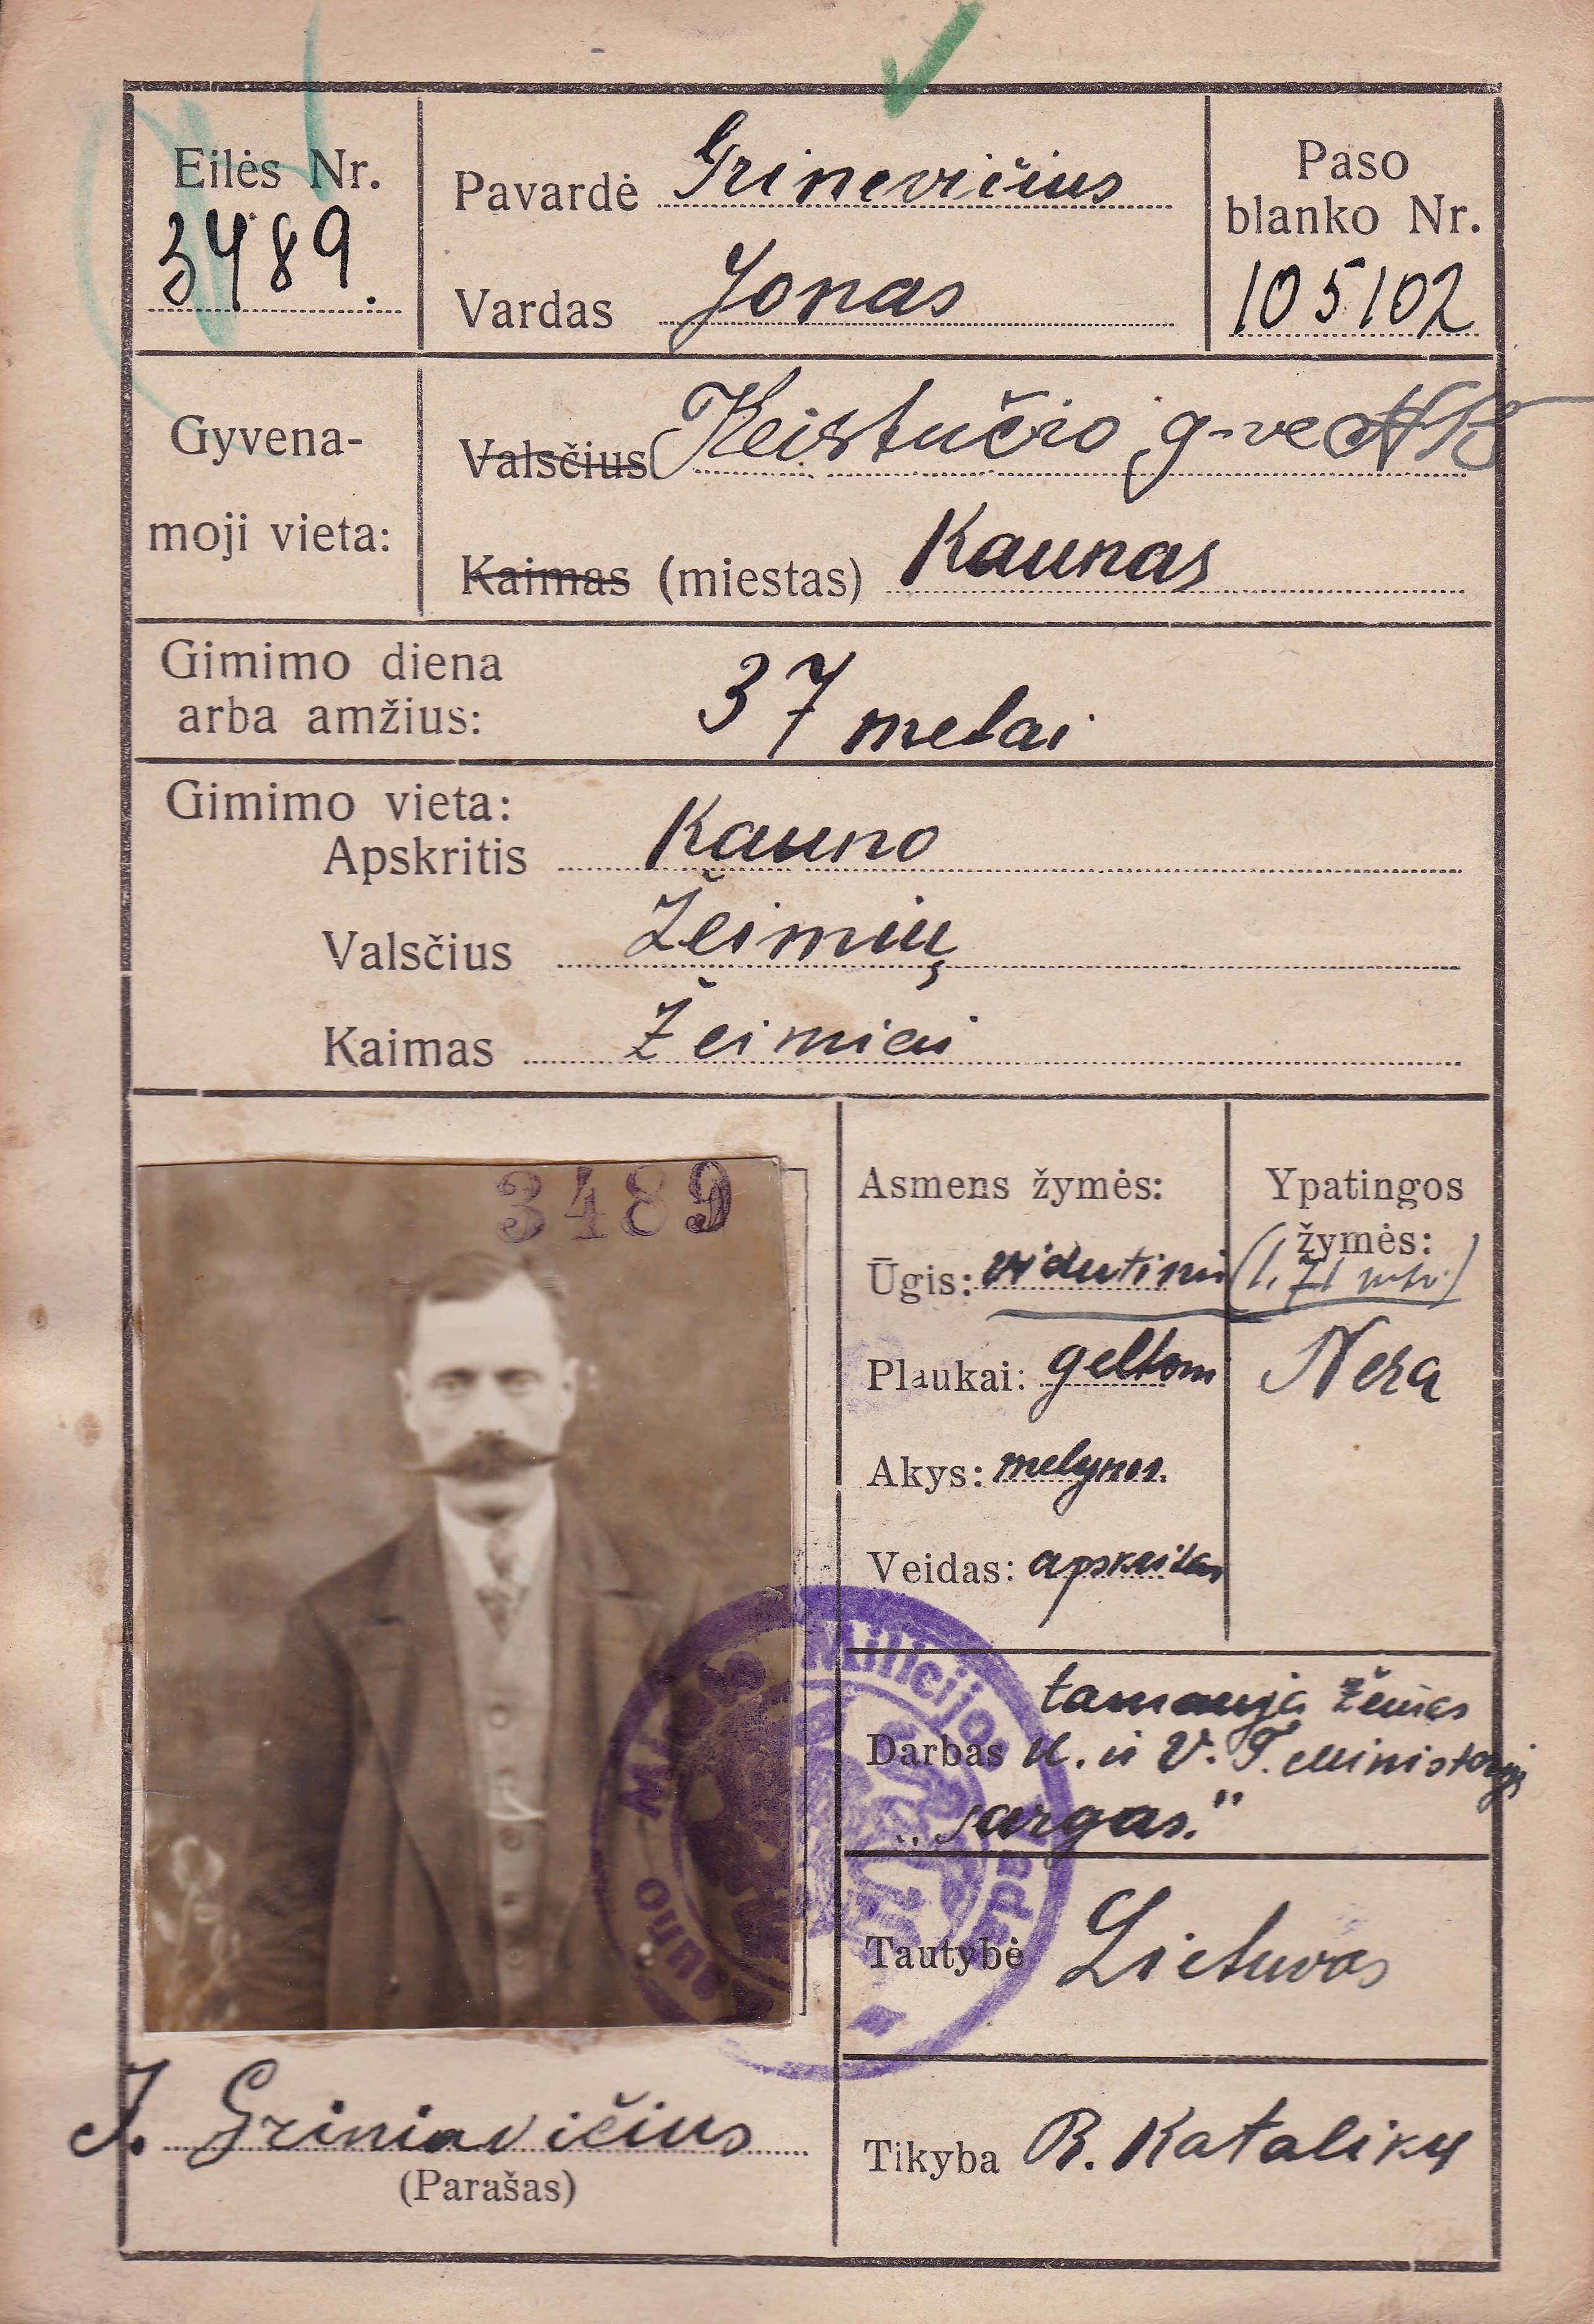 Eilės Nr.
3489.
Pavardė Grinevičius
Vardas Jonas
Paso
blanko Nr.
105102
Gyvena-
moji vieta:
Valsčius Keistučio g-ve
Kaimas (miestas) Kaunas
Gimimo diena
arba amžius:
37 metai
Gimimo vieta:
Apskritis Kauno
Valsčius Žeimių
Kaimas Žeimiai
3489
Asmens žymės:
Ūgis: vidutinis (1,71 mtr.)
Plaukai: geltoni
Akys: melynos.
Veidas: apskritas
Ypatingos
žymės:
Nera
Kauno Miesto Milicijos
tarnauja Žemės
Darbas U. ir V. T. Ministerijoj
„sargas."
Tautybė Lietuvas
Tikyba R. Kataliku
J. Griniavičius
(Parašas)